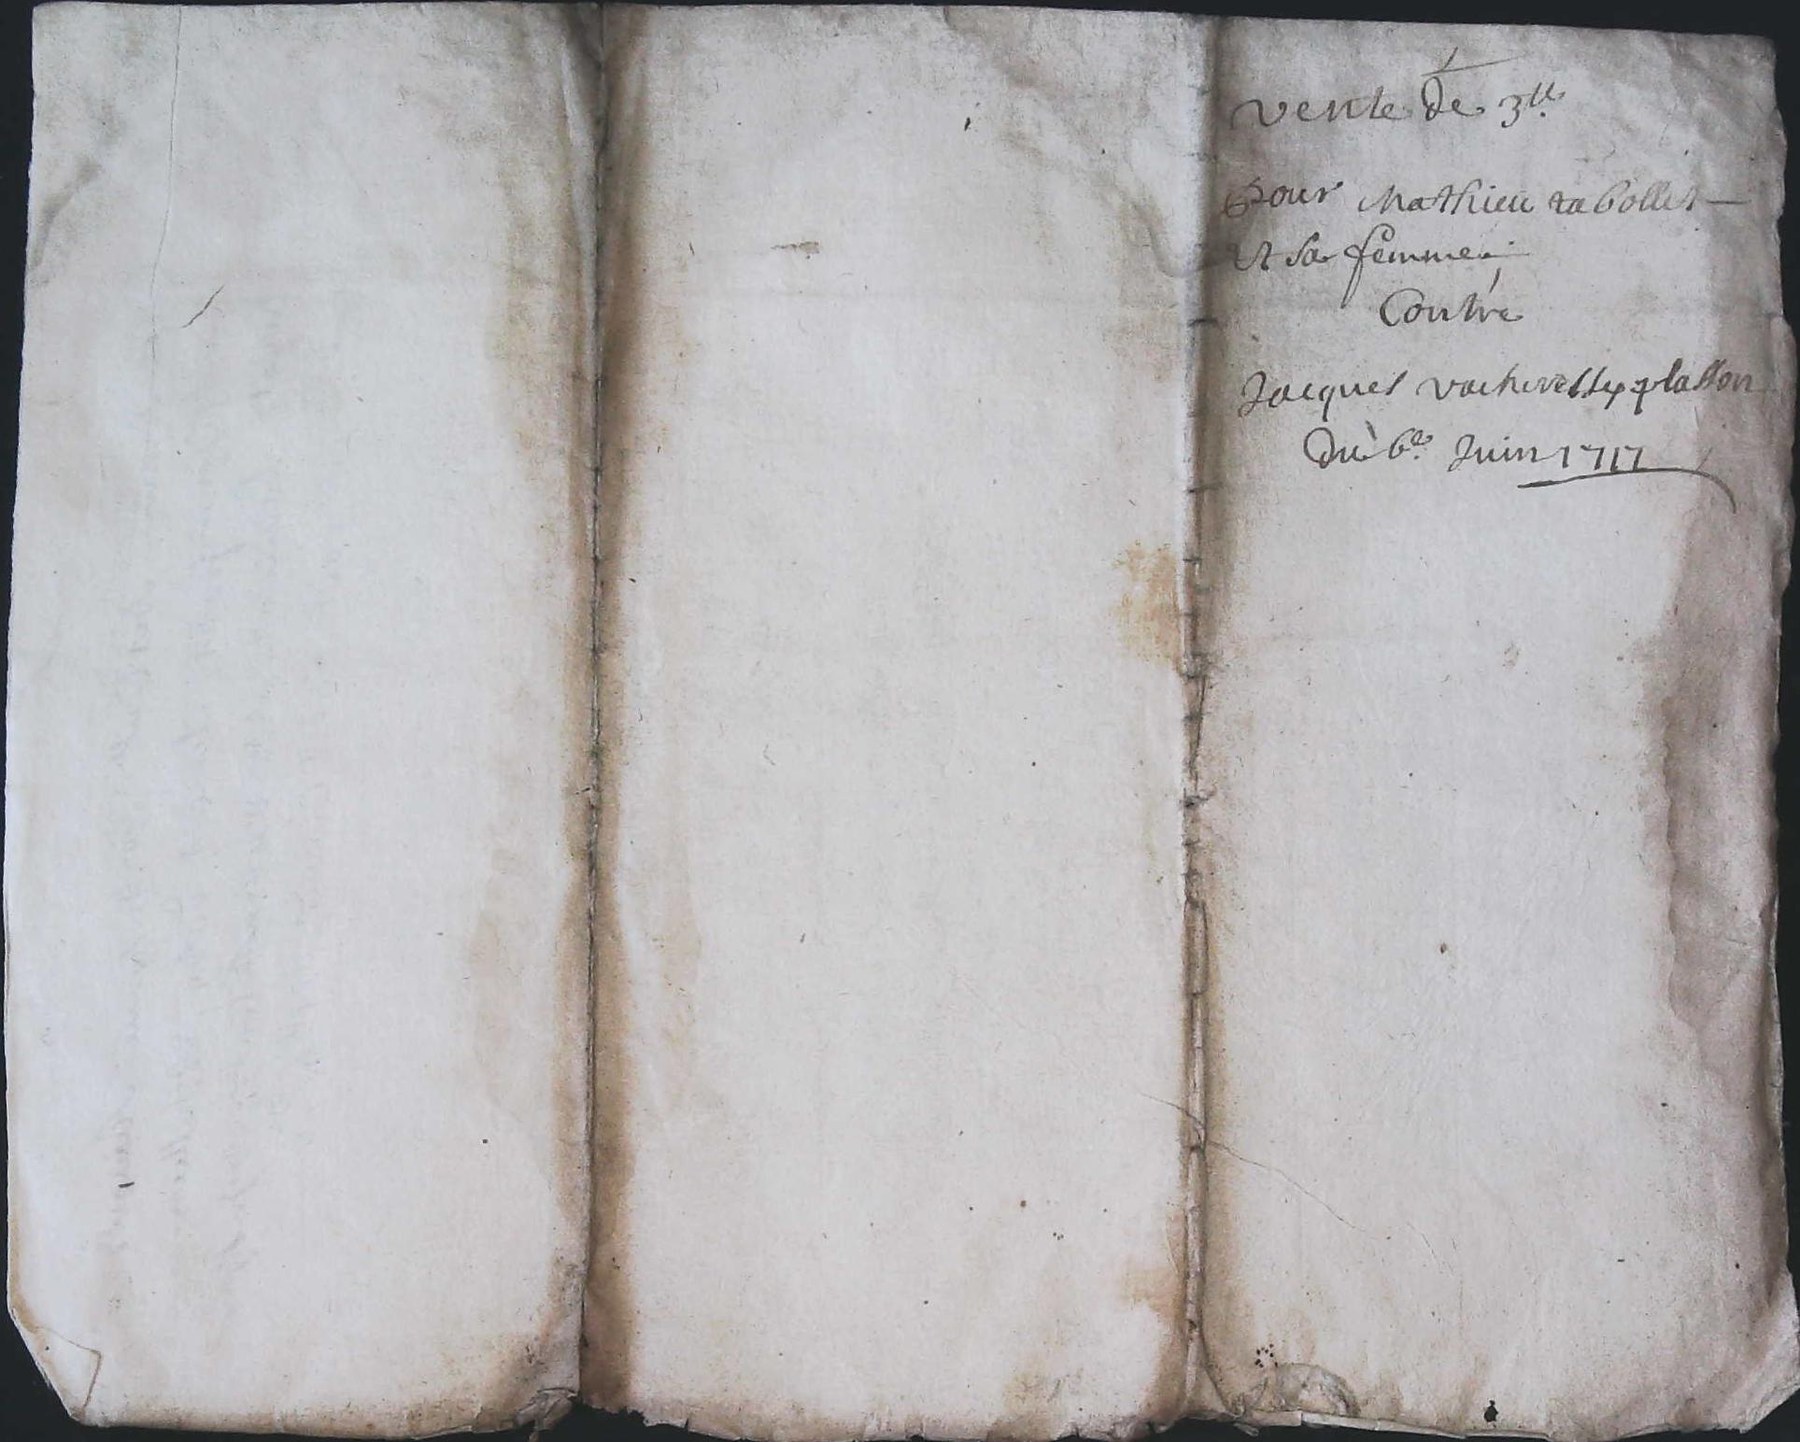 vente de 3ll.
Pour Mathieu tabollet
et sa femme
Contre
Jacques vacheresse plasson
du 6e Juin 1717